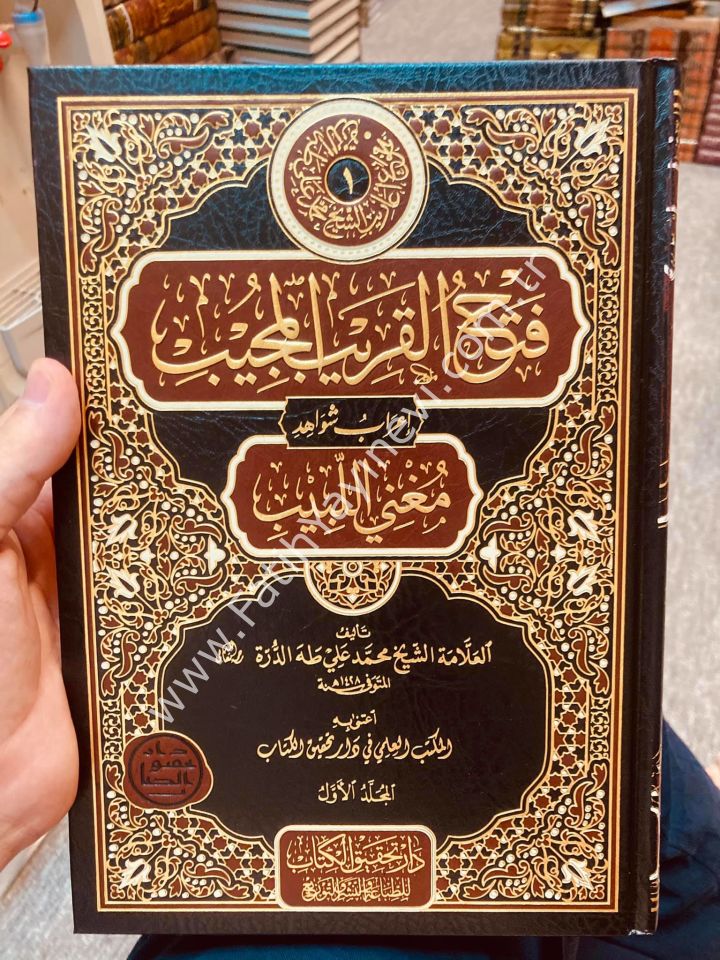 ١
فَتْحُ القَرِيْبِ المُجِيْبِ
إِعْرَابُ شَوَاهِدِ
مُغْنِي اللَّبِيْبِ
تَأليفُ
العَلَّامَة الشَّيْخ مُحَمَّد عَلِي طه الدُّرَة
المتوفى سنة ١٤٢٨هـ
اعتنى به
المكتب العلمي في دار تحقيق الكتاب
المُجَلَّدُ الأَوَّلُ
دار تحقيق الكتاب
للطباعة والنشر والتوزيع
www.FatihYayinevi.com.tr